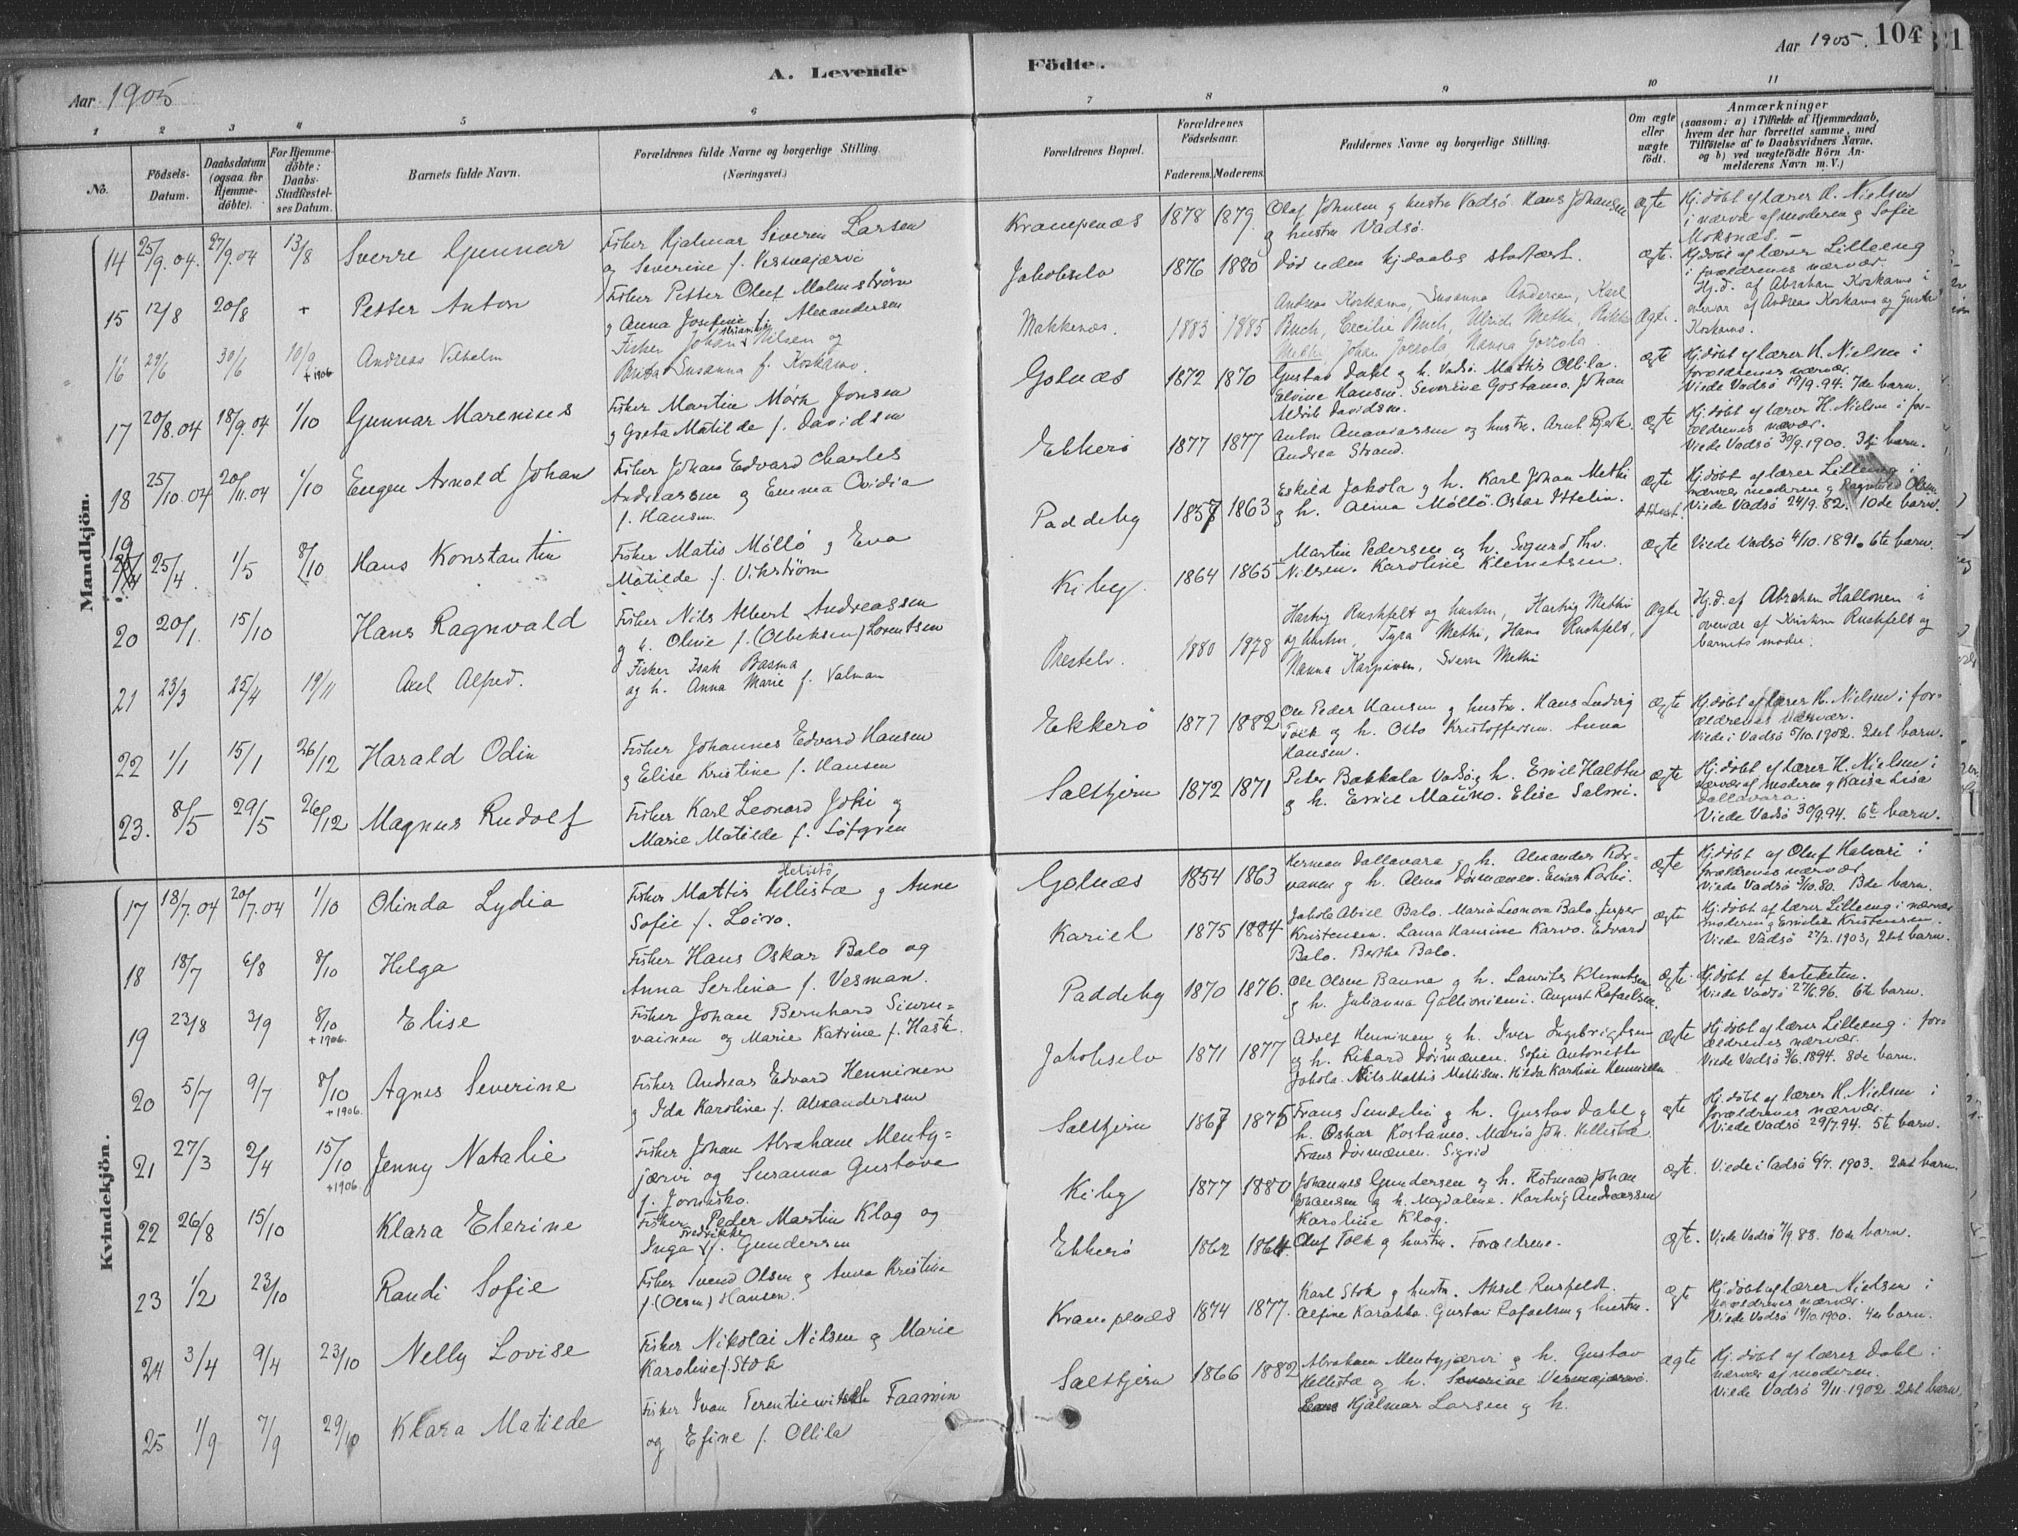 Aar 1905
A. Levende Födte.
Aar 1905. 104
1 2 3 4 5 6 7 8 9 10 11
No.
Födsels-Datum.
Daabsdatum (ogsaa for Hjemmedöbte).
For Hjemmedöbte: Daabs-Stadfæstelses Datum.
Barnets fulde Navn.
Forældrenes fulde Navne og borgerlige Stilling. (Næringsvei.)
Forældrenes Bopæl.
Forældrenes Födselsaar.
Faderens. Moderens.
Faddernes Navne og borgerlige Stilling.
Om ægte eller uægte födt.
Anmærkninger (saasom: a) i Tilfælde af Hjemmedaab, hvem der har forrettet samme, med Tilföielse af to Daabsvidners Navne, og b) ved uægtefödte Börn Anmelderens Navn m. V.)
Mandkjön.
14 25/9.04. 27/9.04 13/8 Sverre Gunnar
Fisker Hjalmar Severin Larsen
og Severine f. Vesmajærvi
Krampenæs 1878 1879
Olaf Johnsen g hustru Vadsö. Hans Johansen
g hustru Vadsö.
ægte
Hj. döbt af lærer H. Nielsen
i nærvær af moderen g Sofie
Moksnæs.
15 12/8 20/8 + Petter Anton
Fisker Petter Oluf Malmstrøm
g Anna Josefine f. Alexandersen
Jakobselv 1876 1880
död uden hjdaabs stadfæst.
ægte.
Hj döbt af lærer Lilleeng
i forældrenes nærvær.
16 29/6 30/6 10/9 +1906 Andreas Vilhelm
Fisker Johan Nilsen og
Susanna f. Koskamo.
Makkenæs. 1883 1885
Andreas Koskamo, Susanna Andersen, Karl
Buch, Cecilie Buch, Ulrich Methi, Rikka
Methi, Johan
Ægte.
Hj. d. af Abraham Koskamo i
overvær af Andreas Koskamo og
Koskamo.
17 20/8.04 18/9.04 1/10 Gunnar Marenius
Fisker Martin Mörk Jonsen
g Greta Matilde f. Davidsen
Golnæs 1872 1870
Gustav Dahl g h. Vadsö. Mathis Ollila.
Elvine Hansen. Severine Gostamo. Johan
Aldrik Davidsen.
ægte
Hj. döbt af lærer H. Nielsen i
forældrenes nærvær.
Viede Vadsö 19/9.94. 7de barn.
18 25/10.04 20/11.04 1/10 Eugen Arnold Johan
Fisker Johan Edvard Charles
Andreassen g Emma Ovidia
f. Hansen.
Ekkerö 1877 1877
Anton Ananiassen og hustru. Arnt Bjerk.
Andrea Strand.
ægte
Hj. döbt af lærer H. Nielsen i for-
ældrenes nærvær.
Viede Vadsö 30/9.1900. 3dj barn.
19 25/4. 1/5 8/10 Hans Konstantin
Fisker Matis Möllö g Eva
Matilde f. Vikström
Paddeby 1857 1863
Eskild Jakola g h. Karl Johan Methi
g h. Alma Möllö. Oskar Ittelin.
ægte
Attest.
Hj. döbt af lærer Lilleeng i
nærvær moderen g Ragnhild Olsen
Viede Vadsö 24/9.82. 10de barn.
20 20/1. 15/10 Hans Ragnvald
Fisker Nils Albert Andreassen
g h. Oline f. (Olbeksen) Lorentsen
Kiby 1864 1865
Martin Pedersen g h. Sigurd Thv.
Nilsen. Karoline Klemetsen.
ægte
Viede Vadsö 4/10.1891. 6te barn.
21 23/3 25/4 19/11 Axel Alfred.
Fisker Isak Basma
og h. Anna Marie f. Valman
Prestelv. 1880 1878
Hartvig Rushfelt og hustru, Hartvig Methi
og hustru, Tyra Methi, Hans Rushfelt,
Nanna Karpinen, Sverre Methi
Ægte
Hj. d. af Abraham Hallonen i
overvær af Kristian Rushfelt og
barnets moder.
22 1/1 15/1 26/12 Harald Odin
Fisker Johannes Edvard Hansen
g Elise Kristine f. Hansen
Ekkerö 1877 1882
Ole Peder Hansen g hustru. Hans Ludvig
Tolk g h. Otto Kristoffersen. Anna
Hansen.
ægte
Hj. döbt af lærer H. Nielsen i for-
ældrenes nærvær.
Viede i Vadsö 5/10.1902. 2det barn.
23. 8/5 29/5 26/12 Magnus Rudolf
Fisker Karl Leonard Joki g
Marie Matilde f. Löfgren
Saltbjern 1872 1871
Peter Bakkala Vadsö g h. Emil Haltta
g h. Emil Mauno. Elise Salmi.
ægte
Hj. döbt af lærer H. Nielsen i
nærvær af moderen g Kaisa Lisa
Dallavara.
Viede Vadsö 30/9.94. 6te barn.
Kvindekjön.
17 18/7.04 20/7.04 1/10 Olinda Lydia
Fisker Mattis Kellistæ g Anne
Sofie f. Loivo.
Golnæs 1854 1863
Herman Dallavara g h. Alexander Kor-
vanen g h. Alma Dörmænen. Einar Karbi.
ægte
Hj. döbt af Oluf Halvari i
forældrenes nærvær.
Viede Vadsö 3/10.80. 13de barn.
18 18/7 6/8 8/10 Helga
Fisker Hans Oskar Balo og
Anna Serlina f. Vesman.
Kariel 1875 1884
Jakob Abiel Balo. Maria Leonora Balo. Jesper
Kristensen. Laura Hansine Karvo. Edvard
Balo. Bertha Balo.
ægte
Hj. döbt af lærer Lilleeng i nærvær
moderen g Emilie Kristensen.
Viede Vadsö 27/2.1903, 2det barn.
19 23/8 3/9 8/10 +1906. Elise
Fisker Johan Bernhard Siirn-
vainen og Marie Katrine f. Hasti.
Paddeby 1870 1876.
Ole Olsen Banna g h. Laurits Klemetsen
g h. Julianna Gallioniemi. August Rafaelsen.
ægte.
Hj. döbt af kateketen.
Viede Vadsö 27/6.96. 6te barn.
20 5/7 9/7 8/10 +1906. Agnes Severine
Fisker Andreas Edvard Henninen
g Ida Karoline f. Alexandersen
Jakobselv 1871 1877
Adolf Henninen g h. Iver Ingebrigtsen
g h. Rikard Dörmænen. Sofie Antonette
Jokola. Nils Mattis Mattisen. Hilda Karoline Henninen
ægte
Hj döbt af lærer Lilleeng i for-
ældrenes nærvær.
Viede Vadsö 3/6.1894. 8de barn.
21 27/3 2/4 15/10 +1906. Jenny Natalie
Fisker Johan Abraham Menty-
jærvi og Susanna Gustava
f. Jornisko.
Saltbjern 1867 1875
Frans Sundelin g h. Gustav Dahl g
h. Oskar Kostamo. Maria Joh. Kellistæ
Frans Dörmænen. Sigrid
ægte
Hj. döbt af lærer H. Nielsen i
forældrenes nærvær.
Viede Vadsö 29/7.94. 5te barn.
22 26/8 15/10 Klara Elerine
Fisker Peder Martin Klog og
Inga Fredrikke f. Gundersen
Kiby 1877 1880
Johannes Gundersen g h. Hofmand Johan
Johansen g h. Magdalene. Hartvig Andreassen
Karoline Klog.
ægte.
Viede i Vadsö 6/7. 1903. 2det barn.
23 1/2 23/10 Randi Sofie
Fisker Svend Olsen g Anna Kristine
f. (Olsen) Hansen.
Ekkerö 1862 1864
Oluf Tolk g hustru. Forældrene.
ægte.
Viede Vadsö 7/9 88. 10de barn.
24 3/4 9/4 23/10 Nelly Lovise
Fisker Nikolai Nilsen g Marie
Karoline f. Stok
Krampenæs 1874 1877.
Karl Stok g hustru. Aksel Rusfeldt.
Alfine Karakka. Gustav Rafaelsen g hustru.
ægte
Hj. döbt af lærer Nielsen i
forældrenes nærvær.
Viede Vadsö 14/10.1900. 4de barn.
25 1/9 7/9 29/10 Klara Matilde
Fisker Ivan Terentiewitsch Faamin
og Efine f. Ollila
Saltbjern 1866 1882
Abraham Mentyjærvi g h. Gustav
Kellistæ g h. Severine Vesmajærvi.
Hjalmar Larsen g h.
ægte
Hj. döbt af lærer Dahl i
nærvær af moderen.
Viede Vadsö 9/11.1902. 2det barn.